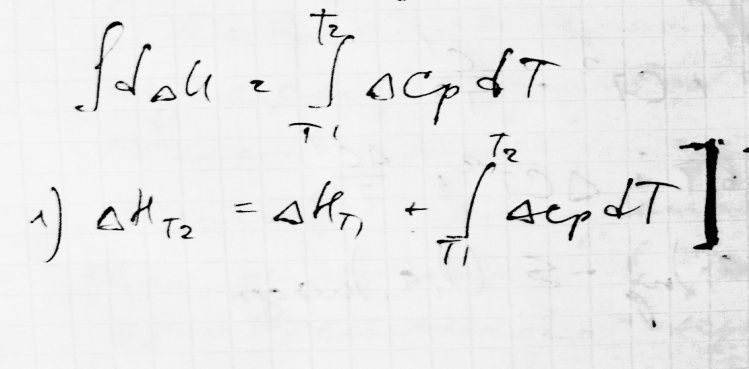 ∫dΔH = ∫_{T1}^{T2} Δcp dT
1) ΔH_{T2} = ΔH_{T1} + ∫_{T1}^{T2} Δcp dT ]